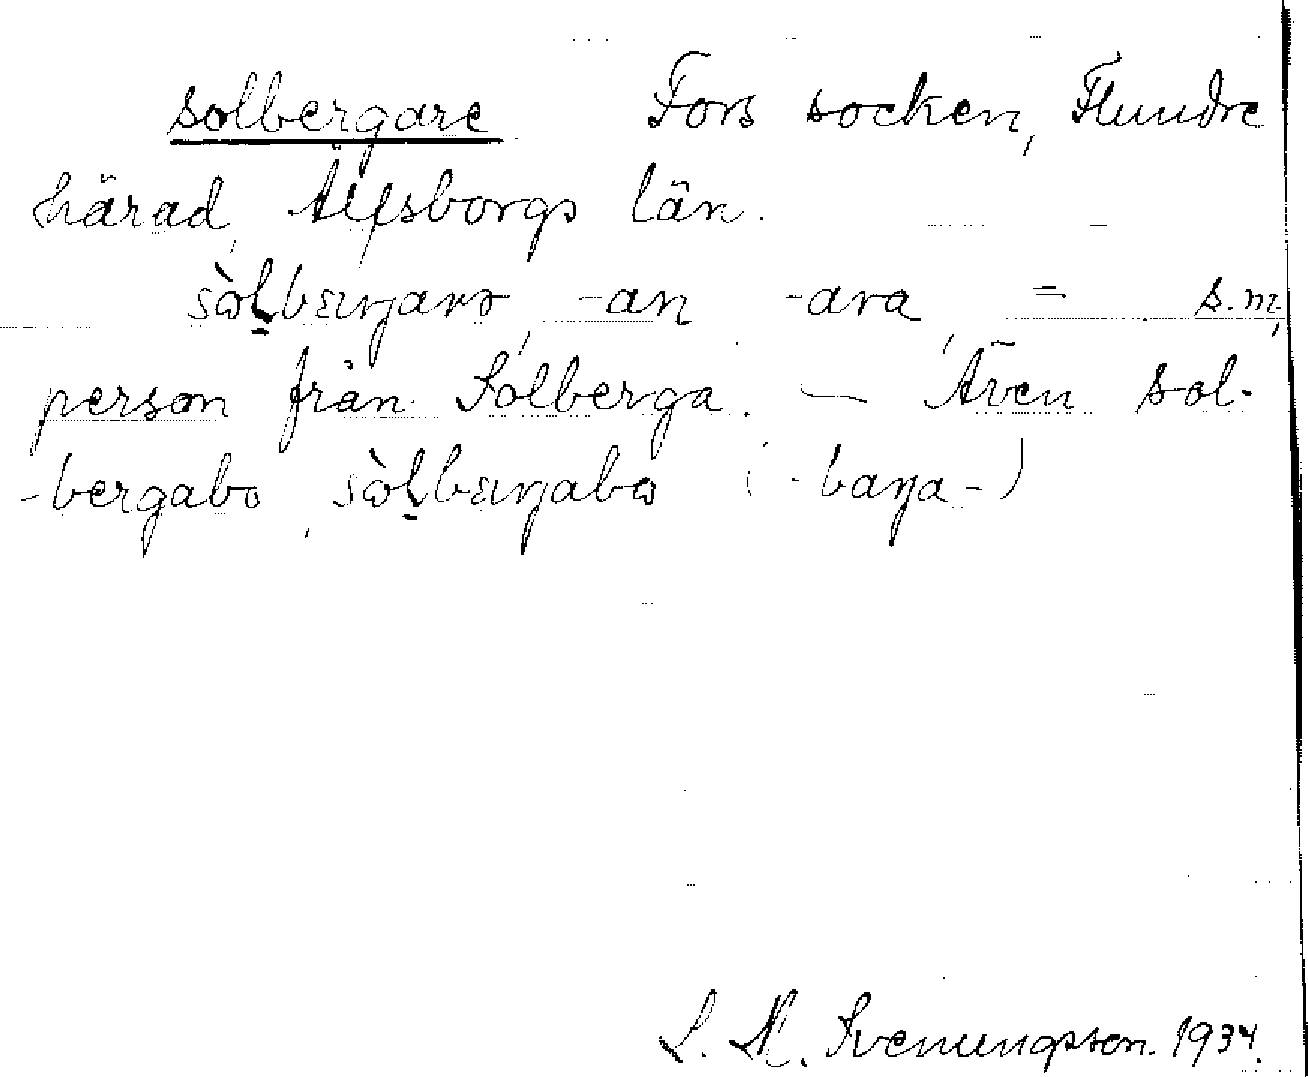 solbergare Fors socken, Flundre
härad, Älfsborgs län.
sὼḷbærjarə, -an -ara, = s.m,
person från Solberga. — Även sol-
-bergabo, sὼḷbærjabω (-barja-)
S. M. Svenungsson. 1934.